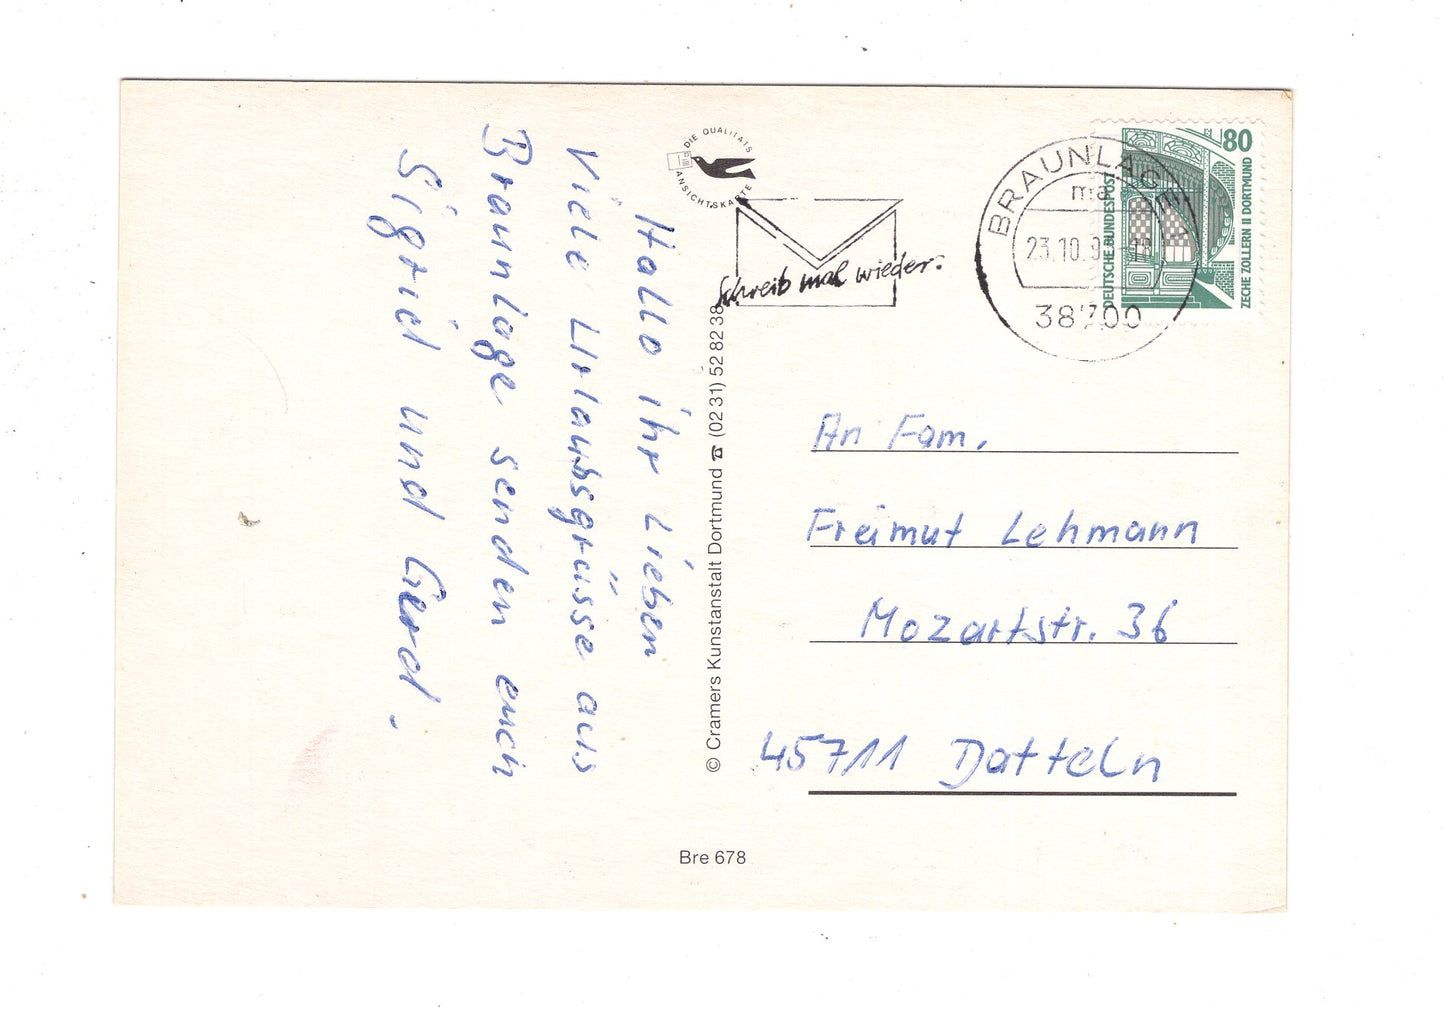 Hallo ihr Lieben
Viele Urlaubsgrüsse aus
Braunlage senden euch
Sigrid und Gerd.
DIE QUALITÄTS
ANSICHTSKARTE
Schreib mal wieder.
© Cramers Kunstanstalt Dortmund ☎ (02 31) 52 82 38
Bre 678
BRAUNLAGE 1
ma
23.10.9 -18
38700
80
DEUTSCHE BUNDESPOST
ZECHE ZOLLERN II DORTMUND
An Fam.
Freimut Lehmann
Mozartstr. 36
45711 Datteln